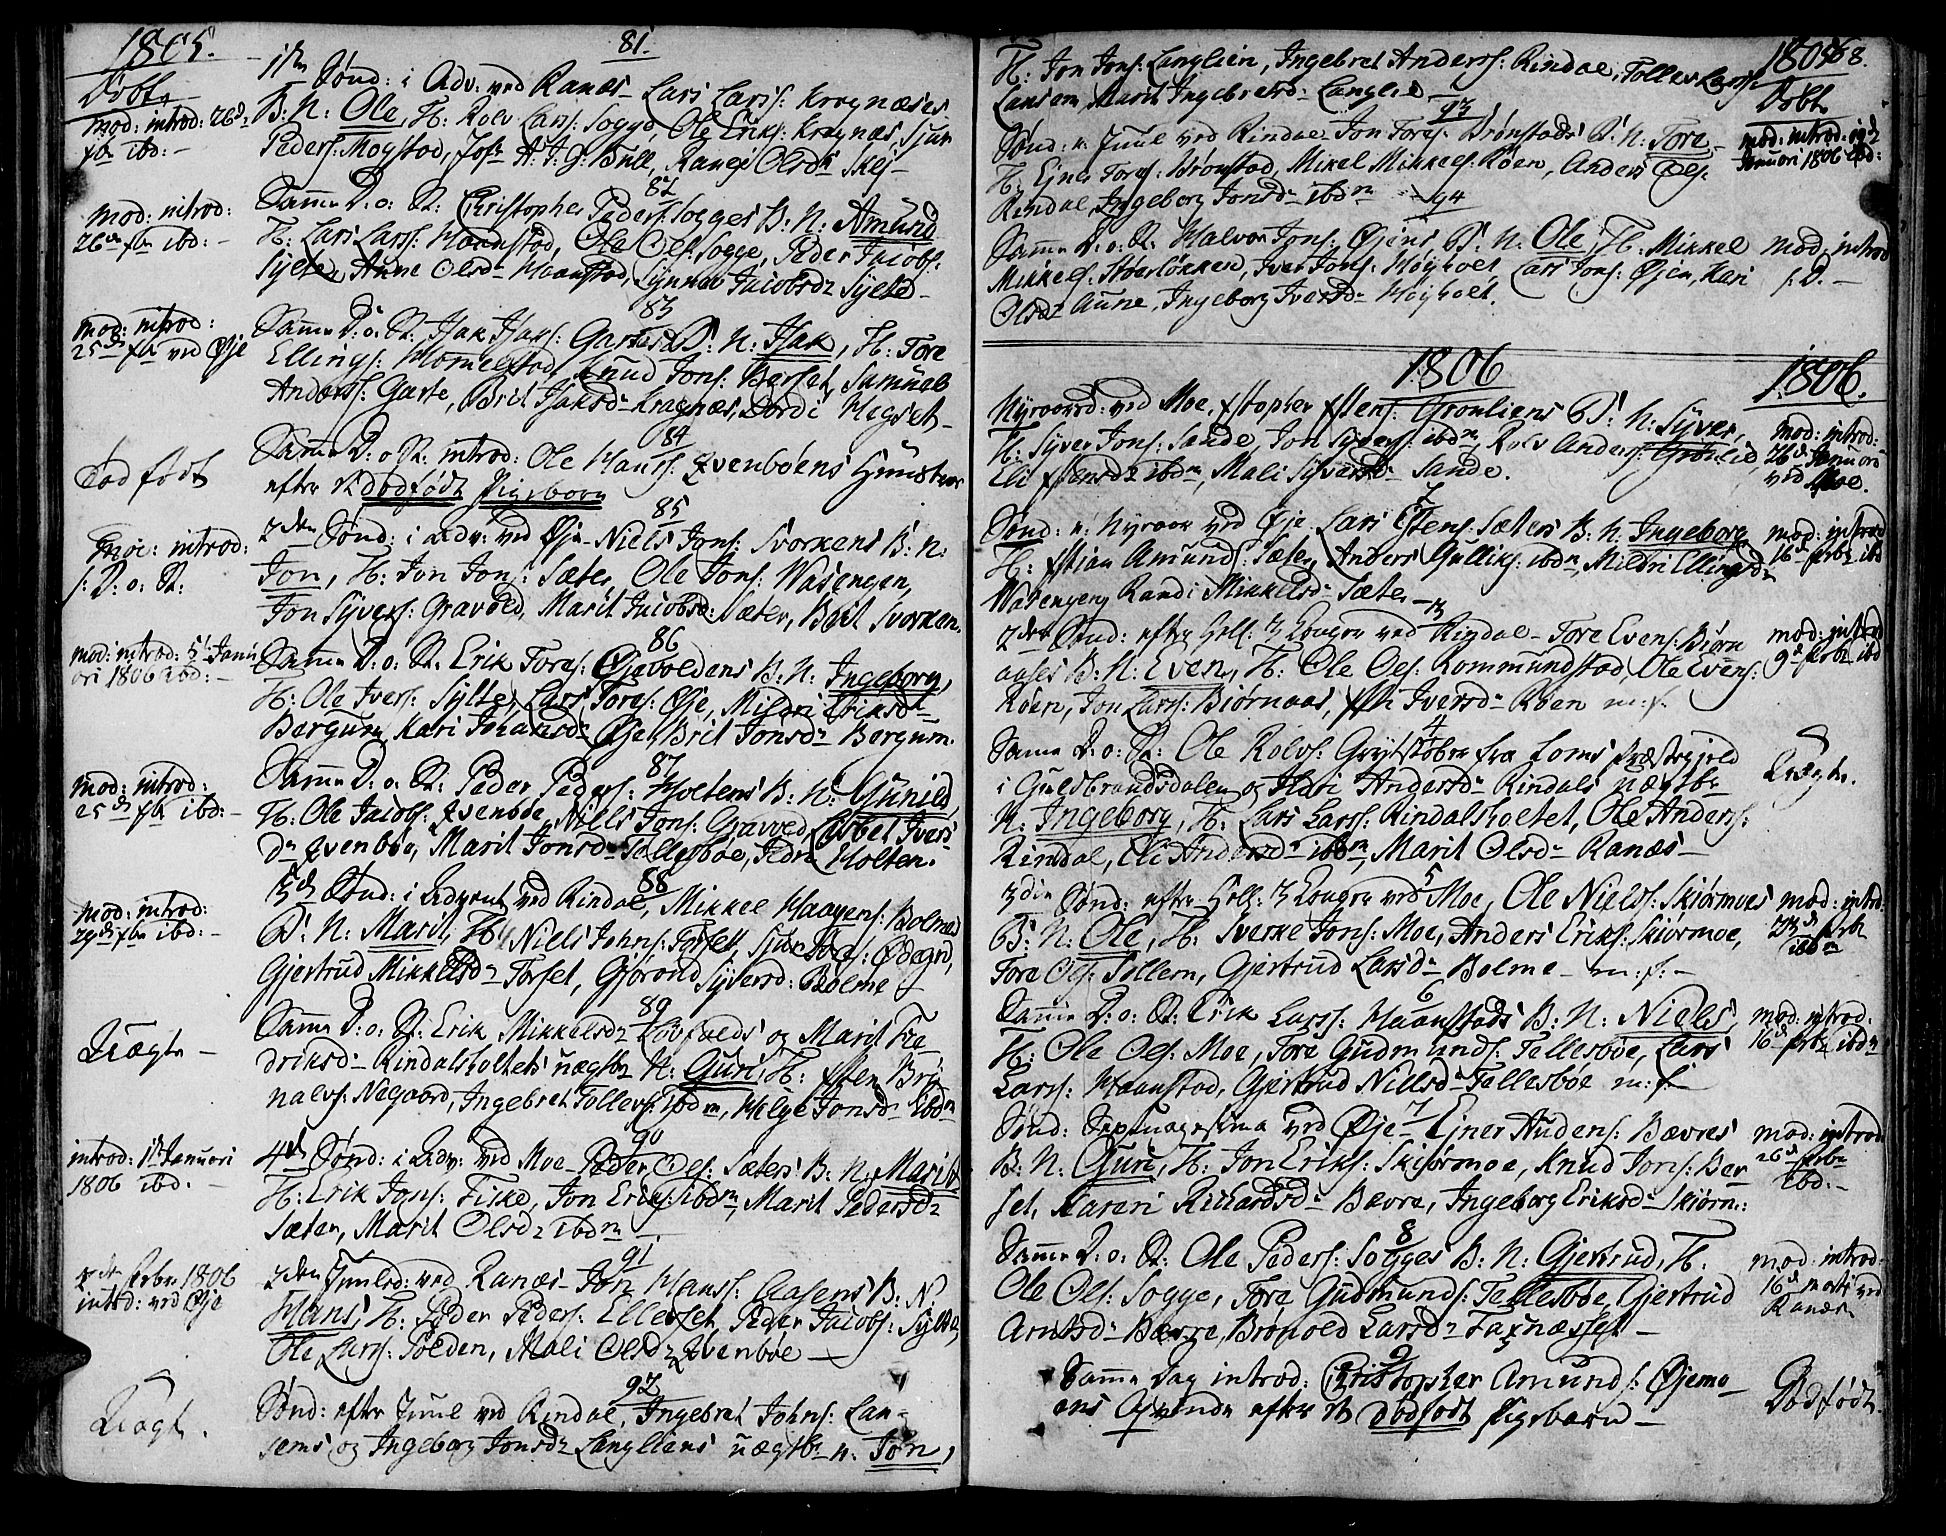 1805.
Døbte
81.
1ste Sønd: i Adv: ved Ranæs Lars Larss: Kragnæses
B: N: Ole, F: Rolv Larss: Sogge, Ole Eriks: Kragnæs, Sjur
Peders: Mogstad, Jfr A: G: Bull, Ranei Olsdr Skej
mod: introd: 26de
xbr ibd:
82
Samme D: o: St: Christopher Peders: Sogges B: N: Amund
F: Lars Larss: Haanstad, Ole Ols: Sogge, Peder Jacobs:
Sylte, Anne Olsdr Haanstad, Synnev Jacobsdr Sylte
mod: introd:
26de xbr ibd:
83
Samme D: o: St: Isak Isaks: Gartes B: N: Isak, F: Tore
Ellings: Homelstad, Knud Jons: Berset, Samuel
Anderss: Garte, Brit Isaksdr Kragnæs, Dordi Megset
mod: introd:
25de xbr ved Øje
84
Samme D: o: St: introd: Ole Hanss: Qvenbøens Hustrue
efter et dødfødt Pigebarn
Dødfødt
85
2den Sønd: i Adv: ved Øje Niels Jons: Svorkens B: N:
Jon, F: Jon Jons: Sæter, Ole Jons: Wasengen,
Jon Syvers: Gravold, Marit Jacobsdr Sæter, Brit Svorken.
mod: introd:
s: D: o: St:
86
Samme D: o: St: Erik Tores: Øjevoldens B: N: Ingeborg,
F: Ole Ivers: Sylte, Lars Tores: Øje, Mildri Eriksdr
Bergum, Kari Johansdr Øje, Brit Jonsdr Bergum.
mod: introd: 5te Janu
ari 1806 ibd:
87
Samme D: o: St: Peder Peders: Holtens B: N: Gunild,
F: Ole Jacobs: Qvenbøe, Niels Jons: Gravved, Lisbet Ivers
dr Qvenbøe, Marit Jonsdr Tellesbøe, Holten.
mod: introd:
25de xbr ibd:
88
3de Sønd: i Advent ved Rindal, Mikkel Haagens: Bolmes
B: N: Marit, F: Niels Johns: Torset, Sjur Tores: Ødegrd,
Gjertrud Mikkelsdr Torset, Gjørond Syversd: Bolme
mod: introd:
29de xbr ibd:
89
Samme D: o: St: Erik Mikkelsdr Løvfalds og Marit Fre
driksdr Rindalsholtets uægtbr N: Guri, F: Sten Bry
nalvs: Negaard, Ingebret Tollevs: ibdm, Helge Jonsdr ibdm
Uægte
90
4de Sønd: i Adv: ved Moe Peder Ols: Sæters B: N: Marit
F: Erik Jons: Fiske, Jon Eriks: ibdm, Marit Pedersdr
Sæter, Marit Olsdr ibdm
introd: 1de Januari
1806 ibd:
91
2den Juuled: ved Ranæs Jon Hanss: Aasens B: N:
Hans, F: Peder Peders: Ellevset, Peder Jacobs: Sylte,
Ole Larss: Polden, Mali Olsdr Qvenbøe
2den Febr: 1806
introd: ved Øje
92
Sønd: efter Juul ved Rindal, Ingebret Johns: Lan-
sems og Ingeborg Jonsdr Langliens uægtbr N: Jon,
Uægte.
1805 68.
Døbte
F: Jon Jons: Langlien, Ingebret Anderss: Rindal, Tollev Larss:
Lansem, Marit Ingebretsdr Langlie
93
Sønd: n: Juul ved Rindal Jon Tores: Brønstads B: N: Tore
F: Ejner Tores: Brønstad, Mikel Mikkels: Røen, Anders Ols:
Rindal, Ingeborg Jonsdr ibdm
mod: introd: 19de
Januari 1806 ibd:
94
Samme D: o: St: Halvor Jons: Øjens B: N: Ole, F: Mikkel
Mikkels: Støerløkken, Iver Jons: Høyholt, Lars Jons: Øjen, Kari
Olsdr Aune, Ingeborg Iversdr Høyholt.
mod: introd
s: D.
1806
1806.
Nyraarsd: ved Moe, Xstopher Xstens: Grønliens B: N: Syver,
F: Syver Jons: Sande, Jon Syvers: ibdm, Rolv Anders: Grønlie,
Eli Xstensdr ibdm, Mali Syversdr Sande.
mod: introd:
26de Januari
ved Moe.
2
Sønd: n: Nyraar ved Øje Lars Estens: Sæters B: N: Ingeborg
F: Xstian Amunds: Sæter, Anders Gulliks: ibdm, Mildri Ellingsdr
Wasengen, Randi Mikkelsdr Sæter
mod: introd
16de Febr: ibd
3
2den Sønd: efter Hell: 3 Konger ved Rindal Tore Evens: Biørn
aases B: N: Even, F: Ole Ols: Kommundstad, Ole Evens:
Røen, Jon Larss: Biørnaas, Iversdr Røen m: f:
mod: introd
9de Febr: ibd
4
Samme D: o: St: Ole Rolvs: Grytstøbr fra Loms Præstegield
i Guldbrandsdalen og Mari Andersdr Rindals uægtbr
N: Ingeborg, F: Lars Larss: Rindalsholtet, Ole Anders:
Rindal, Eli Andersdr ibdm, Marit Olsdr Ranæs
Uægte.
5
3die Sønd: efter Hell: 3 Konger ved Moe, Ole Nielss: Skiørmoes
B: N: Ole, F: Sverke Jons: Moe, Anders Eriks: Skiørmoe,
Tore Ols: Sollem, Gjertrud Larsdr Bolme m: f:
mod: introd:
23de Febr
ibdm
6
Samme D: o: St: Erik Larss: Haanstads B: N: Niels,
F: Ole Ols: Moe, Tore Gudmunds: Tellesbøe, Lars
Larss: Haanstad, Gjertrud Nielsdr Tellesbøe m: f:
mod: introd:
16de Febr: ibdm
7
Sønd: Septuagesima ved Øje Ejner Audens: Bævres
B: N: Guri, F: Jon Eriks: Skiørmoe, Knud Jons: Ber
set, Karen Richardsdr Bævre, Ingeborg Eriksdr Skiørm:
mod: introd
26de Febr:
ibd:
8
Samme D: o: St: Ole Peders: Sogges B: N: Gjertrud, F:
Ole Ols: Sogge, Tore Gudmunds: Tellesbøe, Gjertrud
Arntsdr Bævre, Brønold Larsdr Faxnæsset
mod: introd:
16de Marti ved
Ranæs
9
Samme Dag introd: Christopher Amunds: Øjemo-
ens Qvinde efter et dødfødt Pigebarn
Dødfødt.